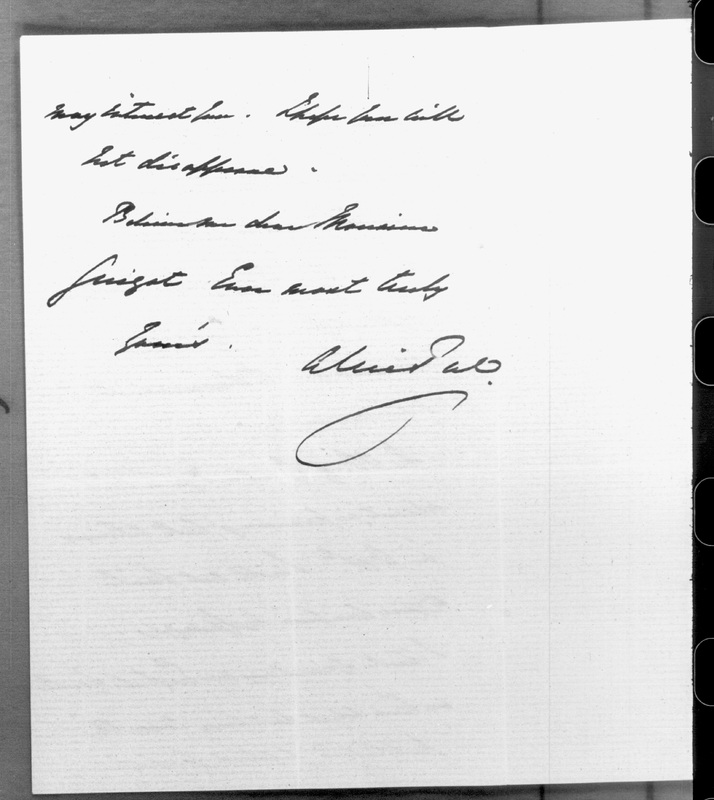 may interest you. I hope you will
not disapprove.
Believe me dear Monsieur
Guizot Ever most truly
Yours.